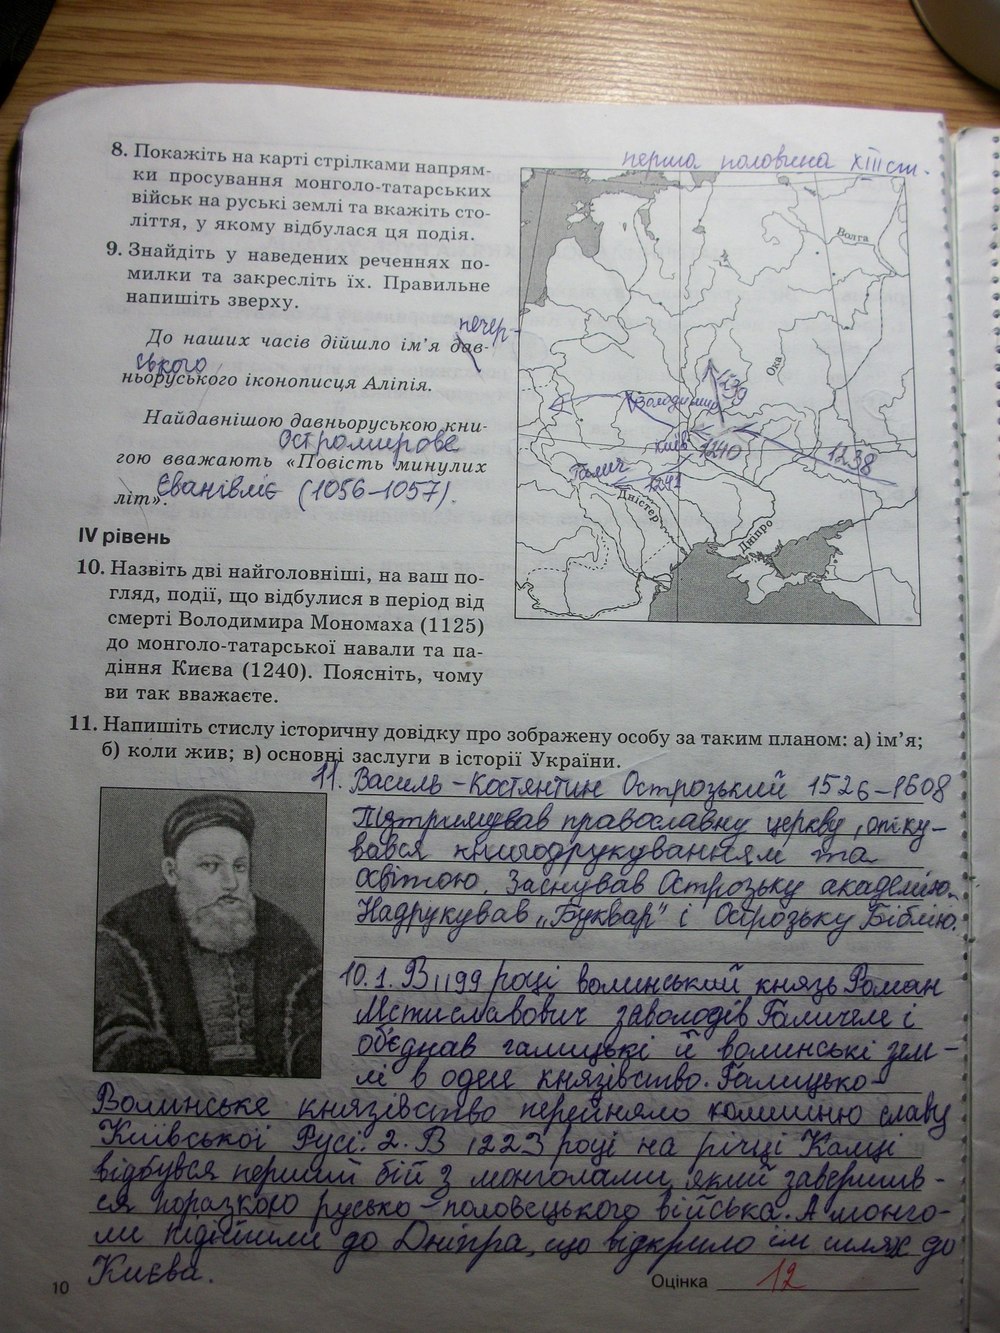 8. Покажіть на карті стрілками напрям-
ки просування монголо-татарських
військ на руські землі та вкажіть сто-
ліття, у якому відбулася ця подія.
9. Знайдіть у наведених реченнях по-
милки та закресліть їх. Правильне
напишіть зверху.
печер-
До наших часів дійшло ім'я дав-
ського
ньоруського іконописця Аліпія.
Найдавнішою давньоруською кни-
Остромирове
гою вважають «Повість минулих
Євангіліє (1056-1057).
літ».
перша половина XIII ст.
Волга
Ока
1239
Володимир
Київ 1240
1238
Галич
1241
Дністер
Дніпро
IV рівень
10. Назвіть дві найголовніші, на ваш по-
гляд, події, що відбулися в період від
смерті Володимира Мономаха (1125)
до монголо-татарської навали та па-
діння Києва (1240). Поясніть, чому
ви так вважаєте.
11. Напишіть стислу історичну довідку про зображену особу за таким планом: а) ім'я;
б) коли жив; в) основні заслуги в історії України.
11. Василь-Костянтин Острозький 1526-1608
Підтримував православну церкву, опіку-
вався книгодрукуванням та
освітою. Заснував Острозьку академію.
Надрукував „Буквар" і Острозьку Біблію.
10.1. В 1199 році волинський князь Роман
Мстиславович заволодів Галичем і
об'єднав галицькі й волинські зем-
лі в одне князівство. Галицько-
Волинське князівство перейняло колишню славу
Київської Русі. 2. В 1223 році на річці Калці
відбувся перший бій з монголами, який завершив-
ся поразкою русько-половецького війська. А монго-
ли підійшли до Дніпра, що відкрило їм шлях до
Києва.
Оцінка 12
10